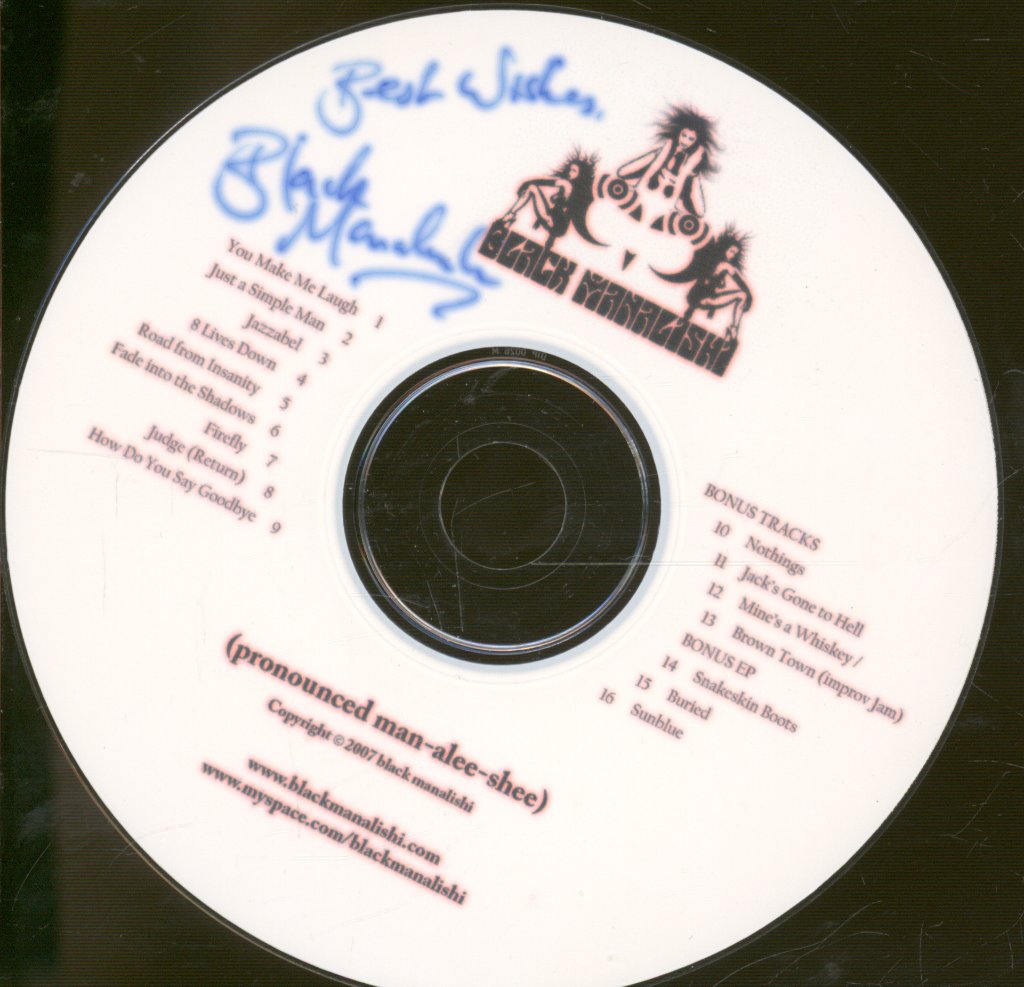 Best Wishes,
Black
Manalishi
BLACK MANALISHI
You Make Me Laugh 1
Just a Simple Man 2
Jazzabel 3
8 Lives Down 4
Road from Insanity 5
Fade into the Shadows 6
Firefly 7
Judge (Return) 8
How Do You Say Goodbye 9
BONUS TRACKS
10 Nothings
11 Jack's Gone to Hell
12 Mine's a Whiskey /
13 Brown Town (improv Jam)
BONUS EP
14 Snakeskin Boots
15 Buried
16 Sunblue
(pronounced man-alee-shee)
Copyright © 2007 black manalishi
www.blackmanalishi.com
www.myspace.com/blackmanalishi